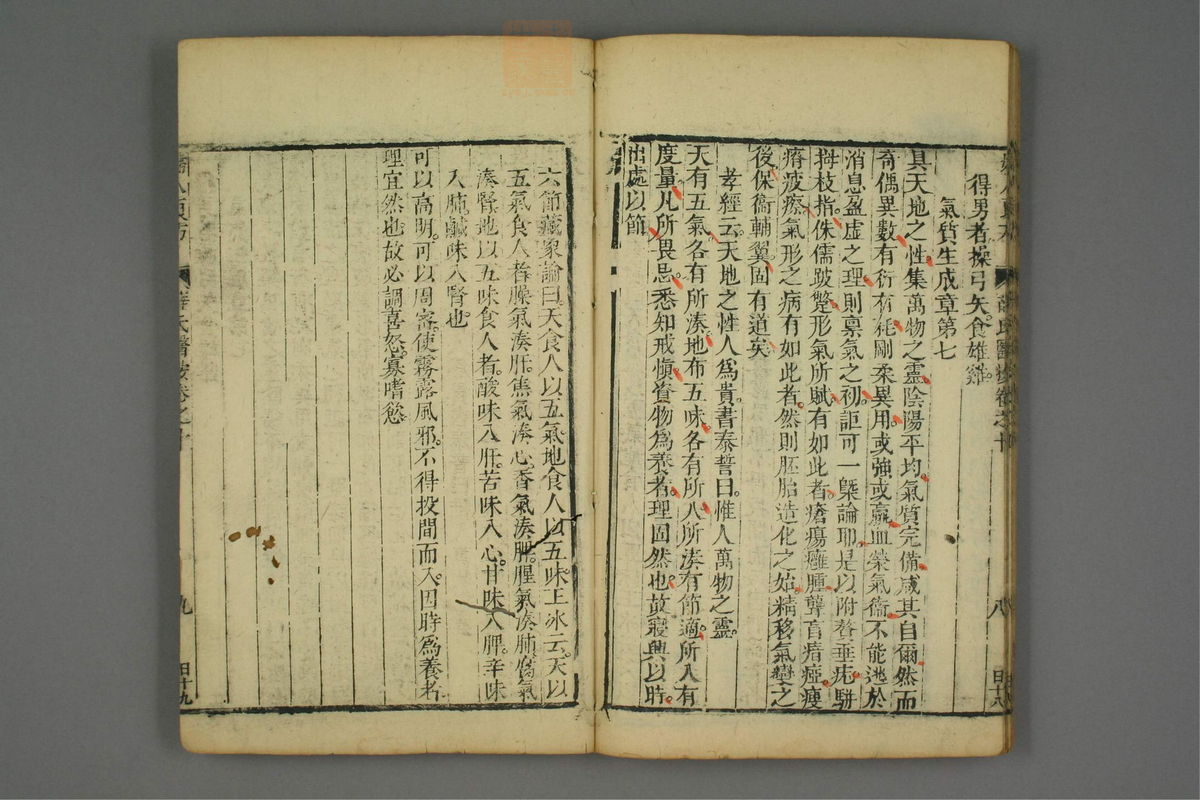 得男者操弓矢食雄雞
氣質生成章第七
具天地之性集萬物之靈陰陽平均氣質完備咸其自爾然而
奇偶異數有衍有耗剛柔異用或強或羸血榮氣衛不能逃於
消息盈虛之理則稟氣之初詎可一槩論耶是以附贅垂疣駢
拇枝指侏儒跛躄形氣所賦有如此者瘡瘍癰腫聾盲瘖瘂瘦
瘠疲瘵氣形之病有如此者然則胚胎造化之始精移氣變之
後保衛輔翼固有道矣
孝經云天地之性人為貴書泰誓曰惟人萬物之靈
天有五氣各有所湊地布五味各有所入所湊有節適所入有
度量凡所畏忌悉知戒慎資物為養者理固然也故寢興以時
出處以節
八
六節藏象論曰天食人以五氣地食人以五味王冰云天以
五氣食人者臊氣湊肝焦氣湊心香氣湊脾腥氣湊肺腐氣
湊腎地以五味食人者酸味入肝苦味入心甘味入脾辛味
入肺鹹味入腎也
可以高明可以周密使霧露風邪不得投間而入因時為養者
理宜然也故必調喜怒寡嗜慾
薛氏醫按卷之十
九
日十九